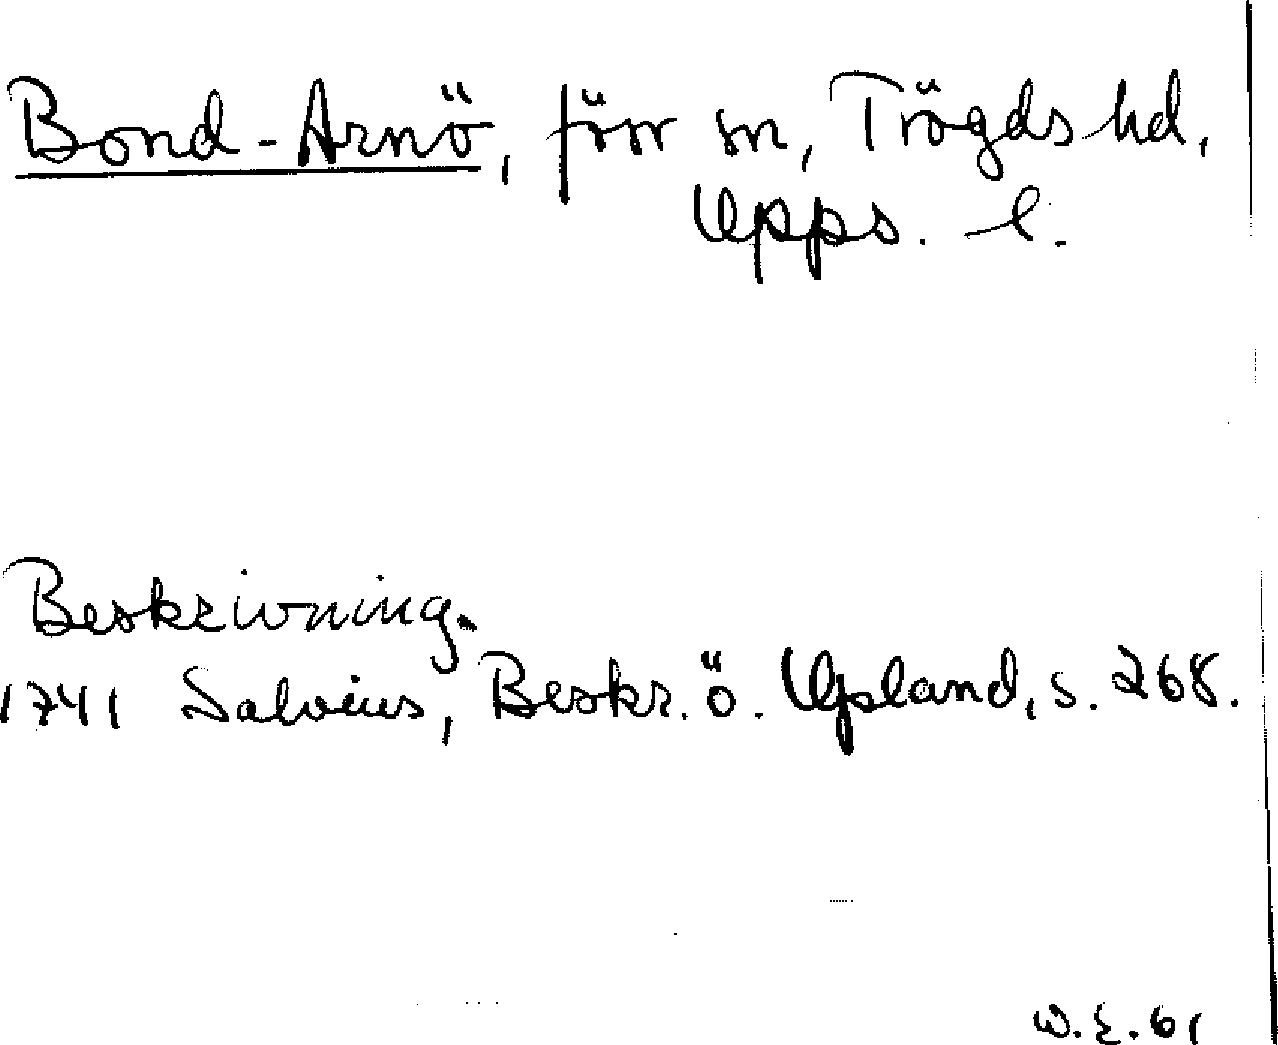 Bond-Arnö, förr sn, Trögds hd,
Upps. l.
Beskrivning.
1741 Salvius, Beskr. ö. Upland, s. 268.
W. E. 61